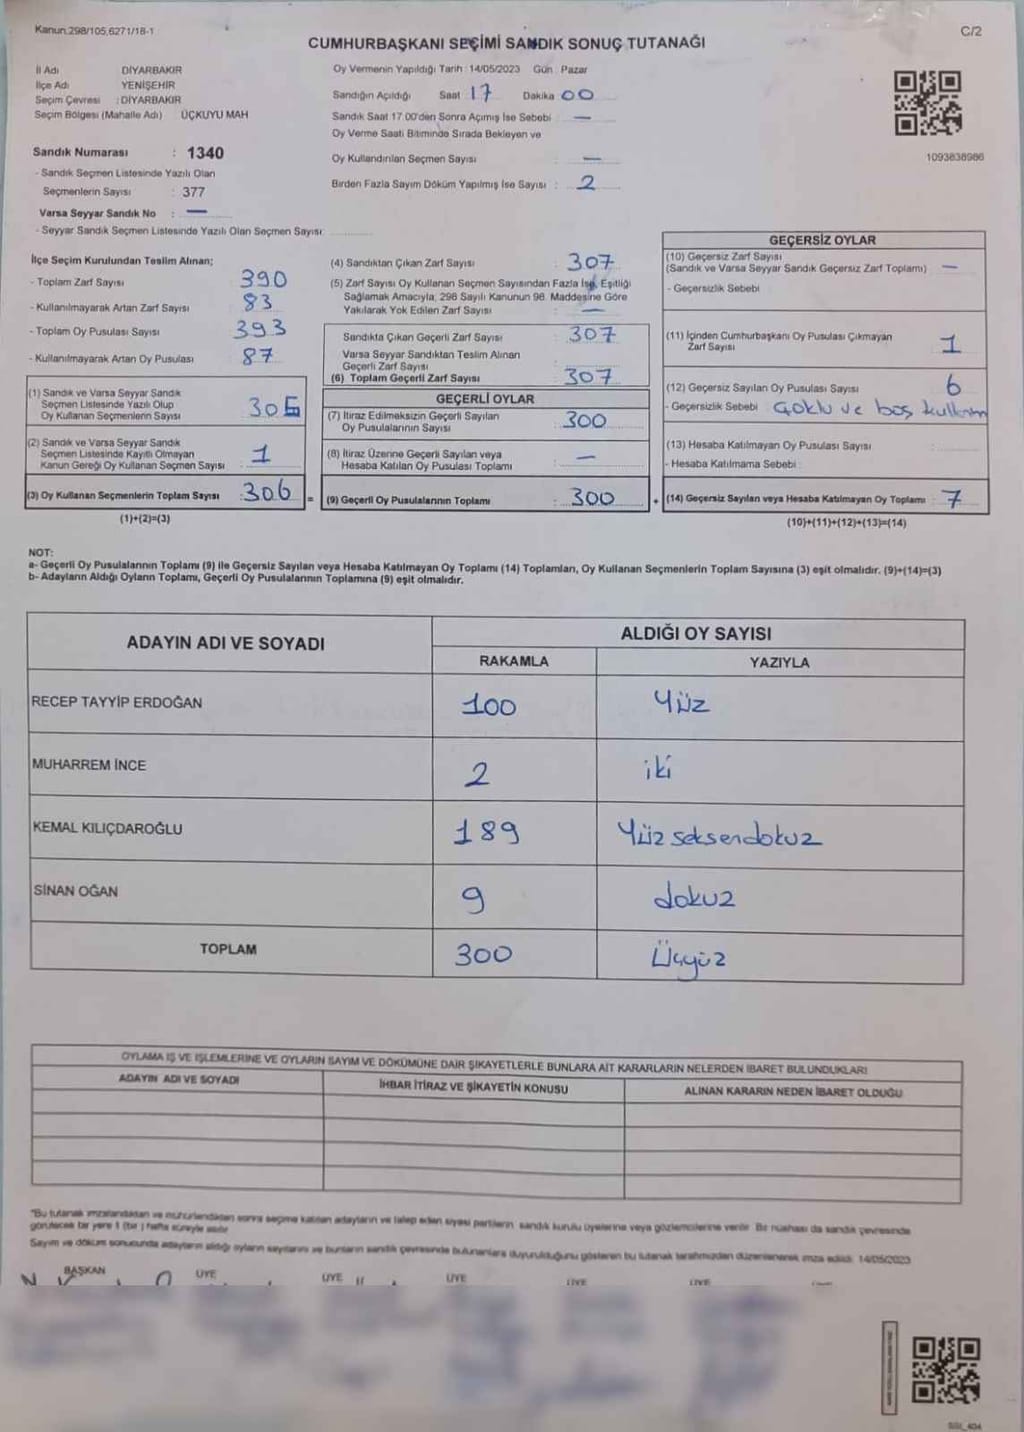 Kanun.298/105,6271/18-1
C/2
CUMHURBAŞKANI SEÇİMİ SANDIK SONUÇ TUTANAĞI
İl Adı DİYARBAKIR
İlçe Adı YENİŞEHİR
Seçim Çevresi : DİYARBAKIR
Seçim Bölgesi (Mahalle Adı) ÜÇKUYU MAH
Sandık Numarası : 1340
- Sandık Seçmen Listesinde Yazılı Olan
Seçmenlerin Sayısı : 377
Varsa Seyyar Sandık No : —
- Seyyar Sandık Seçmen Listesinde Yazılı Olan Seçmen Sayısı
Oy Vermenin Yapıldığı Tarih : 14/05/2023 Gün : Pazar
Sandığın Açıldığı Saat 17 Dakika 00
Sandık Saat 17:00'den Sonra Açımış İse Sebebi : —
Oy Verme Saati Bitiminde Sırada Bekleyen ve
Oy Kullandırılan Seçmen Sayısı : —
Birden Fazla Sayım Döküm Yapılmış İse Sayısı : 2
1093638986
İlçe Seçim Kurulundan Teslim Alınan;
- Toplam Zarf Sayısı : 390
- Kullanılmayarak Artan Zarf Sayısı : 83
- Toplam Oy Pusulası Sayısı : 393
- Kullanılmayarak Artan Oy Pusulası : 87
(1) Sandık ve Varsa Seyyar Sandık
Seçmen Listesinde Yazılı Olup
Oy Kullanan Seçmenlerin Sayısı
(2) Sandık ve Varsa Seyyar Sandık
Seçmen Listesinde Kayıtlı Olmayan
Kanun Gereği Oy Kullanan Seçmen Sayısı : 1
(3) Oy Kullanan Seçmenlerin Toplam Sayısı : 306 =
(1)+(2)=(3)
(4) Sandıktan Çıkan Zarf Sayısı : 307
(5) Zarf Sayısı Oy Kullanan Seçmen Sayısından Fazla İse, Eşitliği
Sağlamak Amacıyla, 298 Sayılı Kanunun 98. Maddesine Göre
Yakılarak Yok Edilen Zarf Sayısı : —
Sandıkta Çıkan Geçerli Zarf Sayısı : 307
Varsa Seyyar Sandıktan Teslim Alınan
Geçerli Zarf Sayısı :
(6) Toplam Geçerli Zarf Sayısı : 307
GEÇERLİ OYLAR
(7) İtiraz Edilmeksizin Geçerli Sayılan
Oy Pusulalarının Sayısı : 300
(8) İtiraz Üzerine Geçerli Sayılan veya
Hesaba Katılan Oy Pusulası Toplamı : —
(9) Geçerli Oy Pusulalarının Toplamı : 300 +
GEÇERSİZ OYLAR
(10) Geçersiz Zarf Sayısı
(Sandık ve Varsa Seyyar Sandık Geçersiz Zarf Toplamı) : —
- Geçersizlik Sebebi
(11) İçinden Cumhurbaşkanı Oy Pusulası Çıkmayan
Zarf Sayısı 1
(12) Geçersiz Sayılan Oy Pusulası Sayısı : 6
- Geçersizlik Sebebi : Çoklu ve boş kullanım
(13) Hesaba Katılmayan Oy Pusulası Sayısı
- Hesaba Katılmama Sebebi :
(14) Geçersiz Sayılan veya Hesaba Katılmayan Oy Toplamı : 7
(10)+(11)+(12)+(13)=(14)
NOT:
a- Geçerli Oy Pusulalarının Toplamı (9) ile Geçersiz Sayılan veya Hesaba Katılmayan Oy Toplamı (14) Toplamları, Oy Kullanan Seçmenlerin Toplam Sayısına (3) eşit olmalıdır. (9)+(14)=(3)
b- Adayların Aldığı Oyların Toplamı, Geçerli Oy Pusulalarının Toplamına (9) eşit olmalıdır.
ADAYIN ADI VE SOYADI
ALDIĞI OY SAYISI
RAKAMLA YAZIYLA
RECEP TAYYİP ERDOĞAN 100 Yüz
MUHARREM İNCE 2 iki
KEMAL KILIÇDAROĞLU 189 Yüz seksendokuz
SİNAN OĞAN 9 dokuz
TOPLAM 300 Üçyüz
OYLAMA İŞ VE İŞLEMLERİNE VE OYLARIN SAYIM VE DÖKÜMÜNE DAİR ŞİKAYETLERLE BUNLARA AİT KARARLARIN NELERDEN İBARET BULUNDUKLARI
ADAYIN ADI VE SOYADI İHBAR İTİRAZ VE ŞİKAYETİN KONUSU ALINAN KARARIN NEDEN İBARET OLDUĞU
"Bu tutanak imzalandıktan ve mühürlendikten sonra seçime katılan adayların ve talep eden siyasi partilerin sandık kurulu üyelerine veya gözlemcilerine verilir. Bir nüshası da sandık çevresinde
görülecek bir yere 1 (bir ) hafta süreyle asılır.
Sayım ve döküm sonucunda adayların aldığı oyların sayılarını ve bunların sandık çevresinde bulunanlara duyurulduğunu gösteren bu tutanak tarafımızdan düzenlenerek imza edildi. 14/05/2023
BAŞKAN ÜYE ÜYE ÜYE ÜYE ÜYE